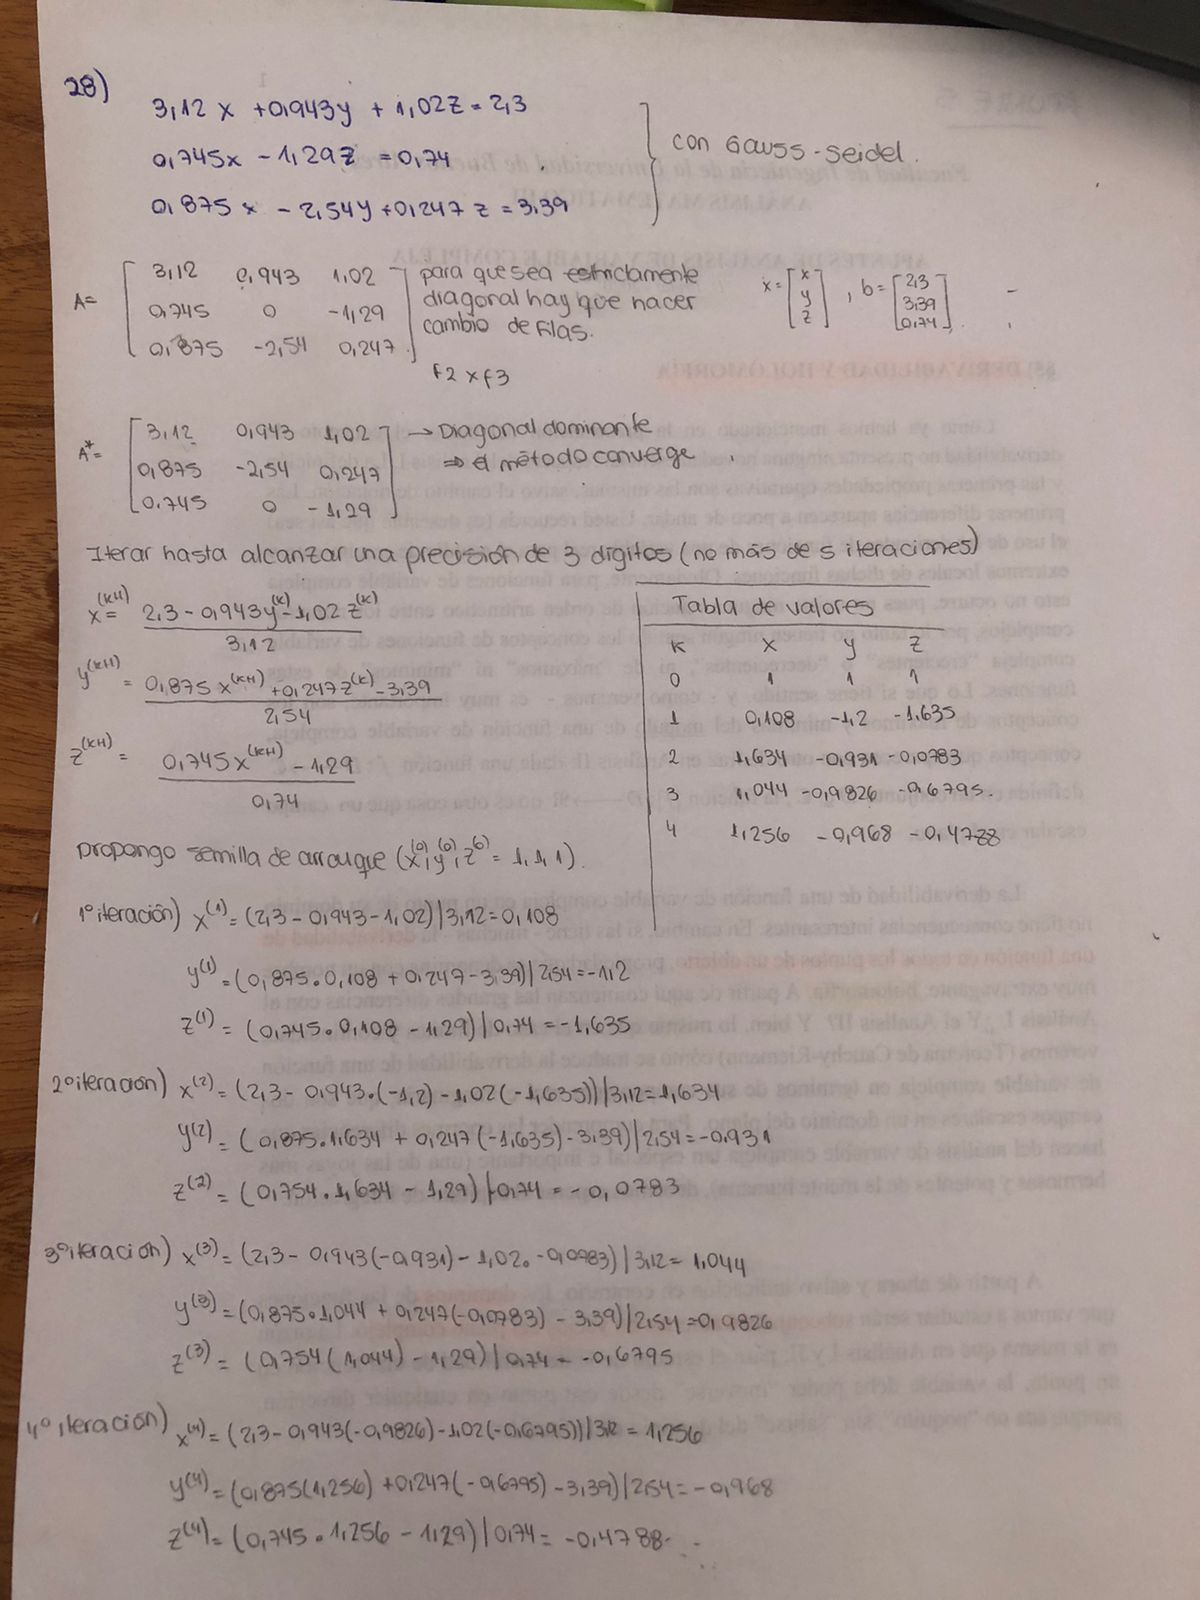 28)
3,12 x + 0,943y + 1,02z = 2,3
0,745x - 1,29z = 0,74
0,875 x - 2,54y + 0,247 z = 3,39
con Gauss-Seidel.
A= [ 3,12 0,943 1,02
0,745 0 -1,29
0,875 -2,54 0,247 ]
para que sea estrictamente
diagonal hay que hacer
cambio de filas.
F2 x F3
x = [ x y z ] , b = [ 2,3 3,39 0,74 ]
A*= [ 3,12 0,943 1,02
0,875 -2,54 0,247
0,745 0 -1,29 ]
→ Diagonal dominante
⇒ el método converge
Iterar hasta alcanzar una precisión de 3 dígitos (no más de 5 iteraciones)
x^(k+1) = (2,3 - 0,943y^(k) - 1,02 z^(k)) / 3,12
y^(k+1) = (0,875 x^(k+1) + 0,247z^(k) - 3,39) / 2,54
z^(k+1) = (0,745x^(k+1) - 1,29) / 0,74
Tabla de valores
K x y z
0 1 1 1
1 0,108 -1,2 -1,635
2 1,634 -0,931 -0,0783
3 1,044 -0,9826 -0,6795.
4 1,256 -0,968 -0,4788
propongo semilla de arranque (x^(0), y^(0), z^(0) = 1,1,1).
1º iteración) x^(1) = (2,3 - 0,943 - 1,02) | 3,12 = 0,108
y^(1) = (0,875 . 0,108 + 0,247 - 3,39) | 2,54 = -1,2
z^(1) = (0,745 . 0,108 - 1,29) | 0,74 = -1,635
2º iteración) x^(2) = (2,3 - 0,943.(-1,2) - 1,02(-1,635)) | 3,12 = 1,634
y^(2) = (0,875 . 1,634 + 0,247 (-1,635) - 3,39) | 2,54 = -0,931
z^(2) = (0,754 . 1,634 - 1,29) | 0,74 = -0,0783
3º iteración) x^(3) = (2,3 - 0,943(-0,931) - 1,02. -0,0983) | 3,12 = 1,044
y^(3) = (0,875 . 1,044 + 0,247(-0,0783) - 3,39) | 2,54 = 0,9826
z^(3) = (0,754 (1,044) - 1,29) | 0,74 = -0,6795
4º iteración) x^(4) = (2,3 - 0,943(-0,9826) - 1,02(-0,6795)) | 3,12 = 1,256
y^(4) = (0,875(1,256) + 0,247(-0,6795) - 3,39) | 2,54 = -0,968
z^(4) = (0,745 . 1,256 - 1,29) | 0,74 = -0,4788.